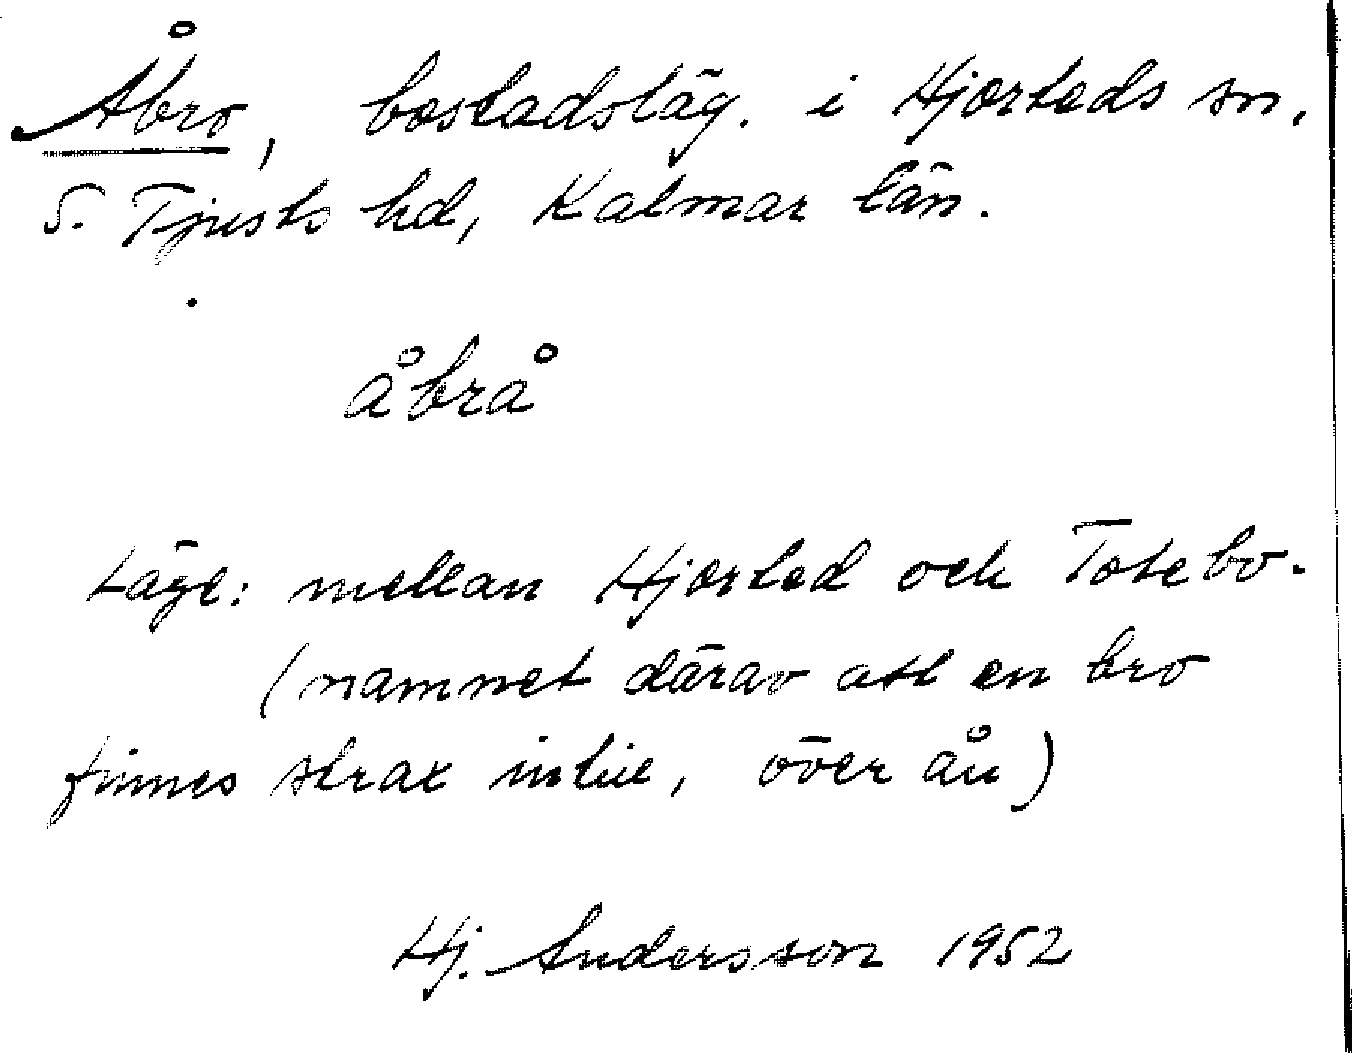 Åbro, bostadsläg. i Hjorteds sn.
S. Tjusts hd, Kalmar län.
åbrå
Läge: mellan Hjorted och Totebo.
(namnet därav att en bro
finnes strax intill, över ån)
Hj. Andersson 1952